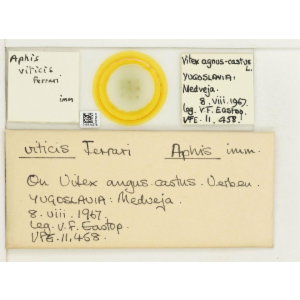 Aphis
viticis
Ferrari
imm
Vitex agnus-castus
L.
YUGOSLAVIA:
Medveja.
8. viii. 1967.
leg. V.F. Eastop.
VFE. 11,458.
viticis Ferrari Aphis imm.
On Vitex angus-castus. Verben.
YUGOSLAVIA: Medveja.
8. viii. 1967.
Leg. V.F. Eastop.
VFE. 11,458.